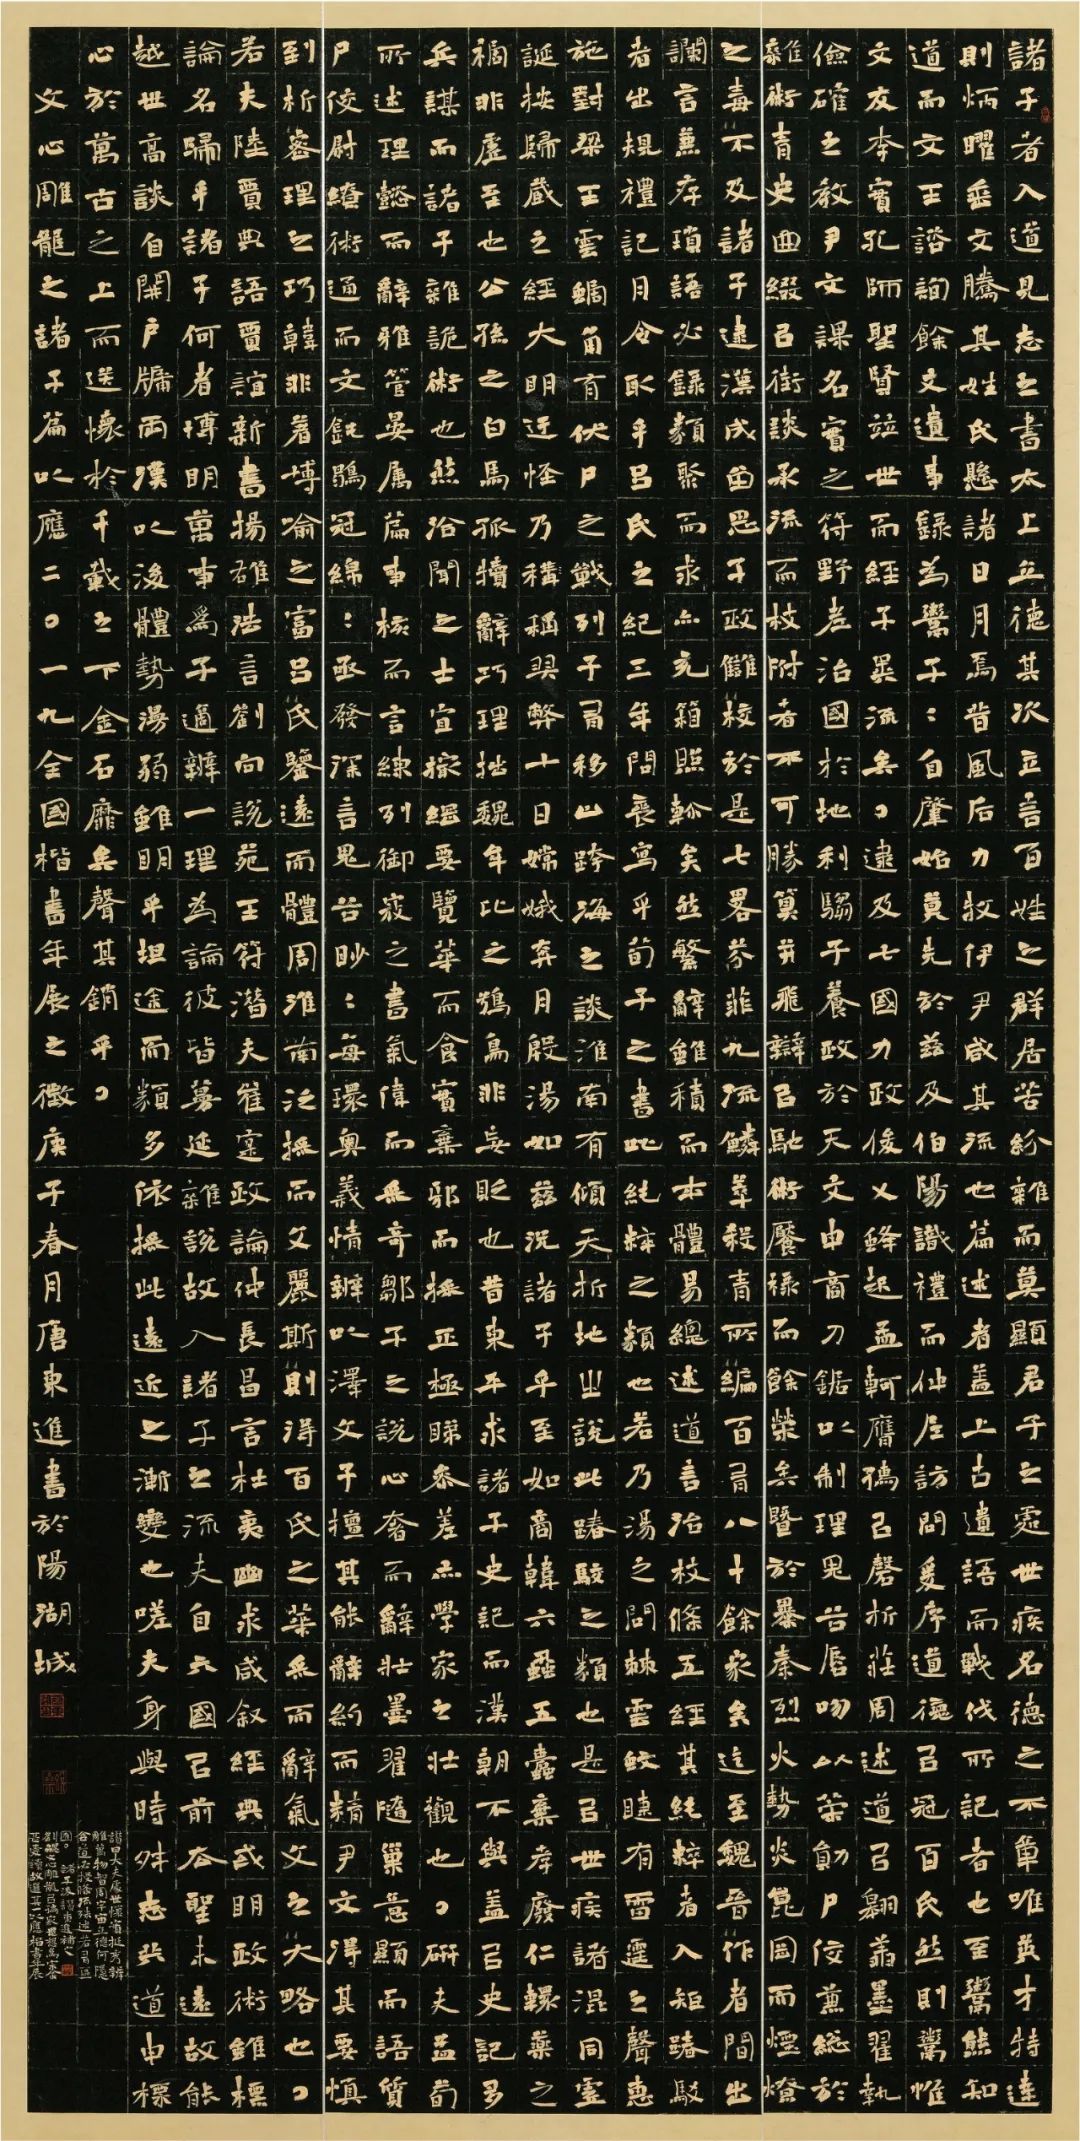 諸子者入道見志之書太上立德其次立言百姓之群居苦紛雜而莫顯君子之處世疾名德之不章唯英才特達
則炳曜垂文騰其姓氏懸諸日月焉昔風后力牧伊尹咸其流也篇述者蓋上古遺語而戰伐所記者也至鬻熊知
道而文王諮詢餘文遺事錄為鬻子:自肇始莫先於茲及伯陽識禮而仲尼訪問爰序道德以冠百氏然則鬻惟
文友李實孔師聖賢並世而經子異流矣。逮及七國力政俊乂蜂起孟軻膺儒以磬折莊周述道以翱翔墨翟執
儉確之教尹文課名實之符野老治國於地利騶子養政於天文申商刀鋸以制理鬼谷唇吻以策勳尸佼兼總於
雜術青史曲綴以街談承流而枝附者不可勝算并飛辯以馳術饜祿而餘榮矣暨於暴秦烈火勢炎崑岡而煙燎
之毒不及諸子逮漢成留思子政讎校於是七略芬菲九流鱗萃殺青所編百有八十餘家矣迄至魏晉作者間出
讕言兼存瑣語必錄類聚而求亦充箱照軫矣然繁辭雖積而本體易總述道言治枝條五經其純粹者入矩踳駁
者出規禮記月令取乎呂氏之紀三年問喪寫乎荀子之書此純粹之類也若乃湯之問棘雲蚊睫有雷霆之聲惠
施對梁王雲蝸角有伏尸之戰列子有移山跨海之談淮南有傾天折地之說此踳駁之類也是以世疾諸混同虛
誕按歸藏之經大明迂怪乃稱稱羿弊十日嫦娥奔月殷湯如茲況諸子乎至如商韓六蝨五蠹棄孝廢仁轘藥之
禍非虛至也公孫之白馬孤犢辭巧理拙魏牟比之鴞鳥非妄貶也昔東平求諸子史記而漢朝不與蓋以史記多
兵謀而諸子雜詭術也然洽聞之士宜撮綱要覽華而食實棄邪而採正極睇參差亦學家之壯觀也。研夫孟荀
所述理懿而辭雅管晏屬篇事核而言練列御寇之書氣偉而采奇鄒子之說心奢而辭壯墨翟隨巢意顯而語質
尸佼尉繚術通而文鈍鶡冠綿:亟發深言鬼谷眇:每環奧義情辨以澤文子擅其能辭約而精尹文得其要慎
到析密理之巧韓非著博喻之富呂氏鑒遠而體周淮南泛採而文麗斯則得百氏之華采而辭氣文之大略也。
若夫陸賈典語賈誼新書揚雄法言劉向說苑王符潛夫崔寔政論仲長昌言杜夷幽求咸敘經典或明政術雖標
論名歸乎諸子何者博明萬事為子適辨一理為論彼皆蔓延雜說故入諸子之流夫自六國以前去聖未遠故能
越世高談自開戶牖兩漢以後體勢漫弱雖明乎坦途而類多依採此遠近之漸變也嗟夫身與時舛志共道申標
心於萬古之上而送懷於千載之下金石靡矣聲其銷乎。
文心雕龍之諸子篇以應二〇一九全國楷書年展之徵庚子春月唐東進書於陽湖城
讚曰大夫處世懷寶挺秀辨
雕萬物智周宇宙立德何隱
含道必授條流殊述若有區
囿。